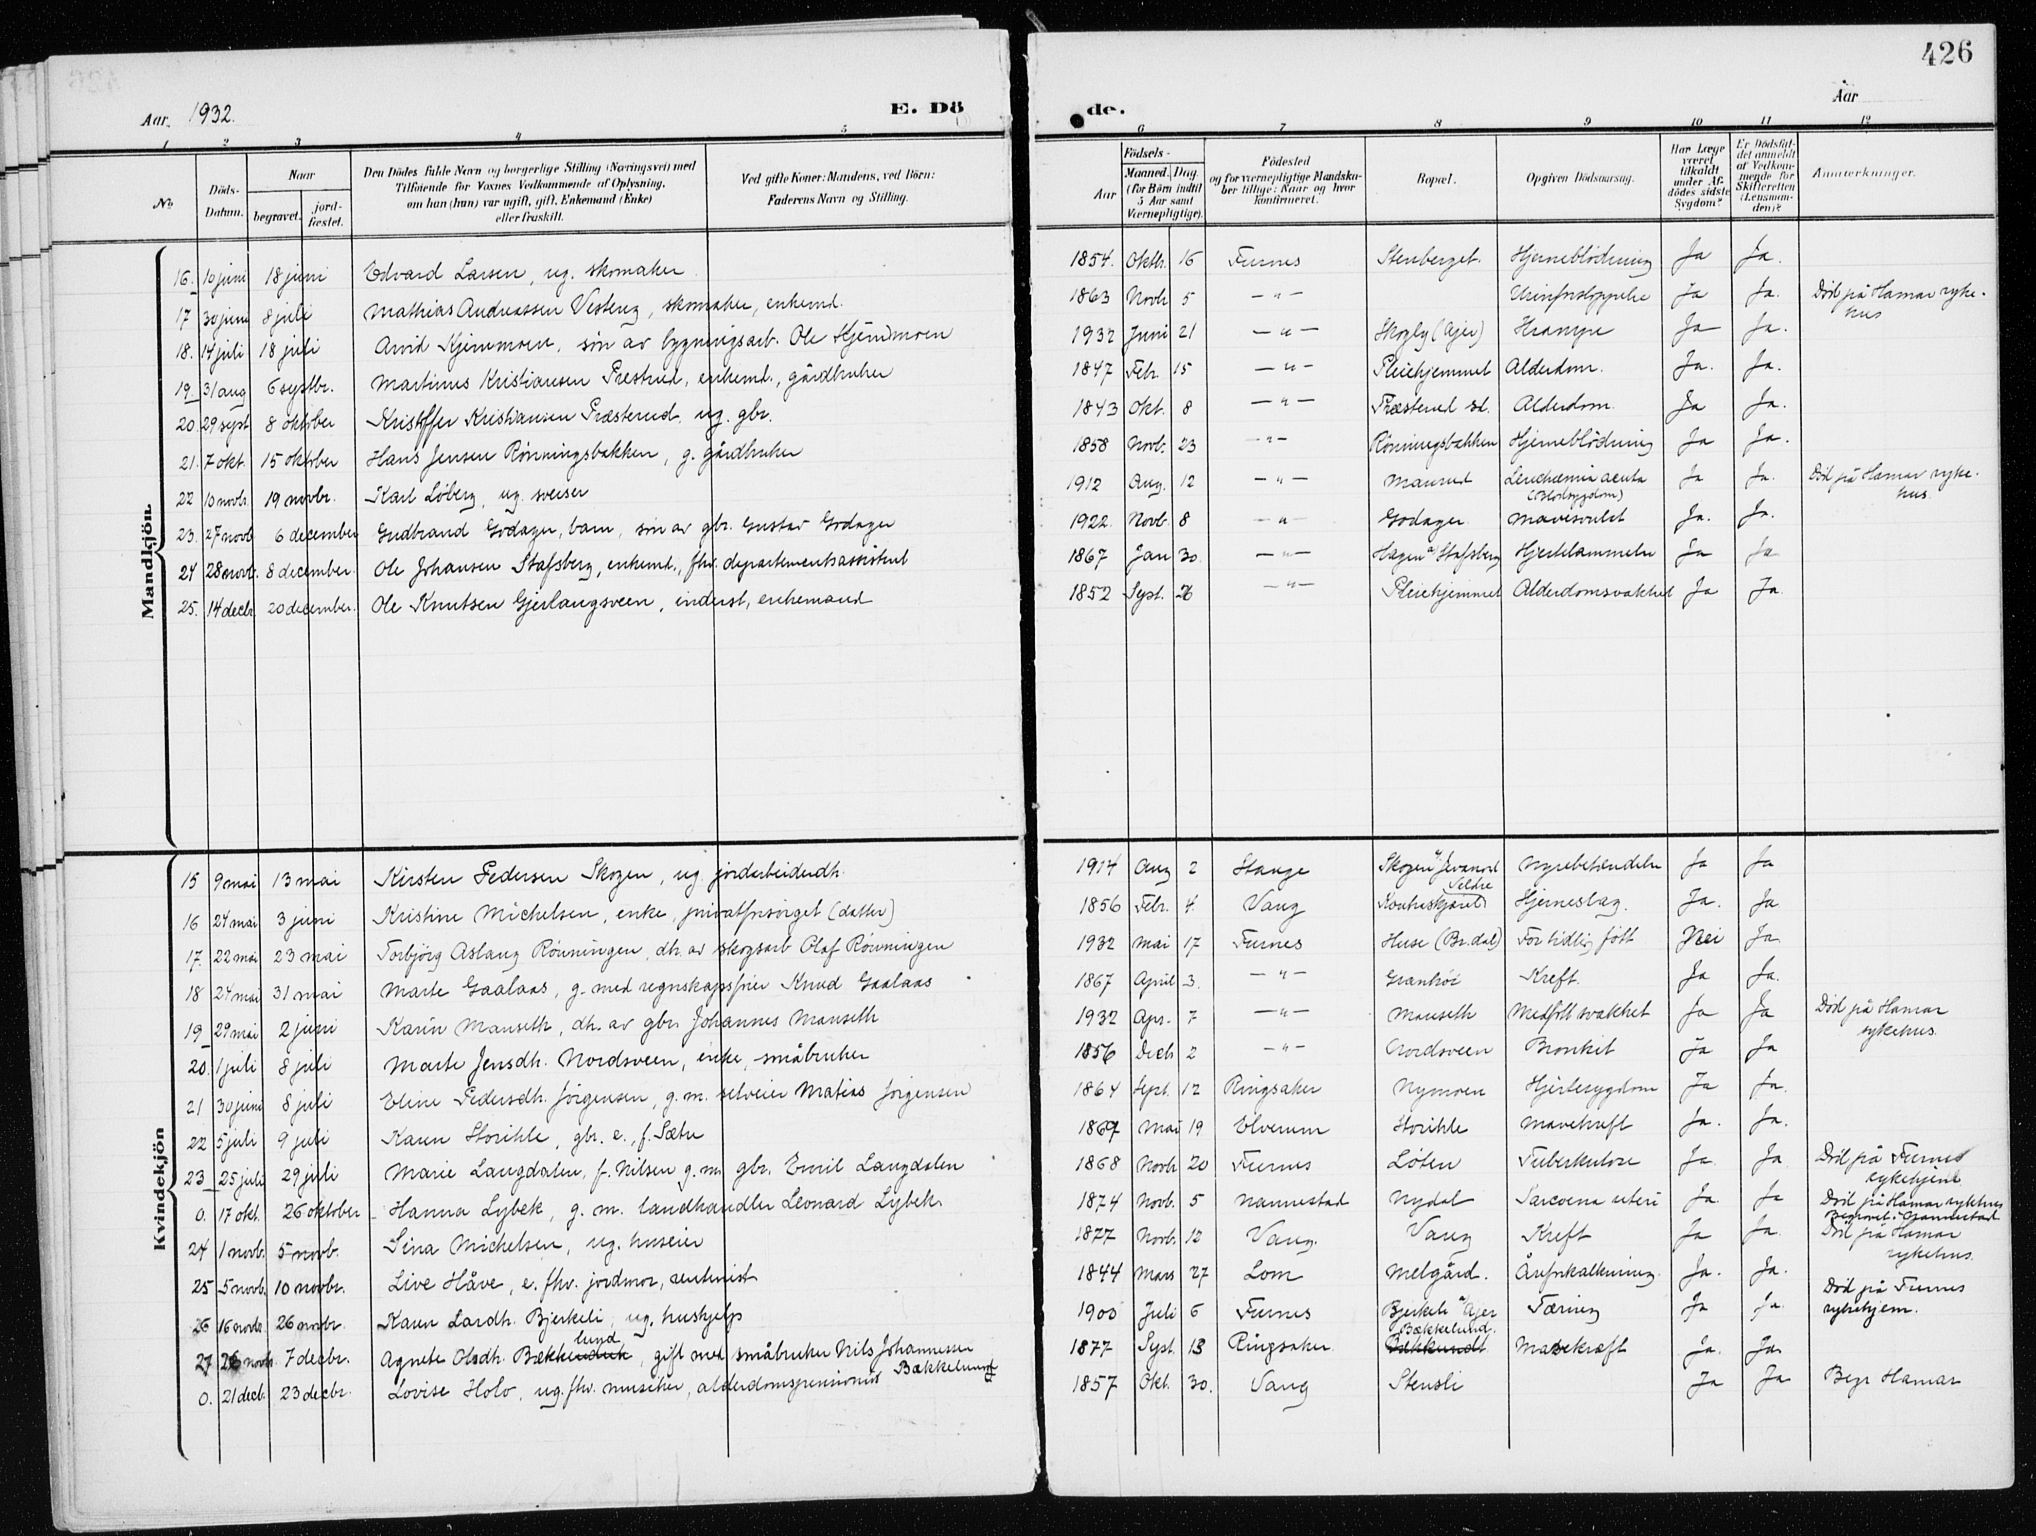 426
Aar 1932.
E. Dö
de.
Aar
1 2 3 4 5
6 7 8 9 10 11 12
No.
Döds-Datum.
Naar
begravet.
jord-fæstet.
Den Dödes fulde Navn og borgerlige Stilling (Næringsvei) med
Tilföiende for Voxnes Vedkommende af Oplysning,
om han (hun) var ugift, gift, Enkemand (Enke)
eller fraskilt.
Ved gifte Koner: Mandens, ved Börn:
Faderens Navn og Stilling.
Födsels-
Aar
Maaned. Dag.
(for Börn indtil
5 Aar samt
Værnepligtige).
Födested
og for værnepligtige Mandska-
ber tillige: Naar og hvor
konfirmeret.
Bopæl.
Opgiven Dödsaarsag.
Har Læge
været
tilkaldt
under Af-
dödes sidste
Sygdom?
Er Dödsfal-
det anmeldt
af Vedkom-
mende for
Skifteretten
(Lensman-
den)?
Anmærkninger.
Mandkjön.
16. 10 juni 18 juni Edvard Larsen, ug. skomaker 1854. Oktb. 16 Furnes Stenberget. Hjerneblödning Ja Ja.
17 30 juni 8 juli Mathias Andreassen Vesteng, skomaker, enkemd. 1863 Novb 5 -"- Ja Ja. Död på Hamar syke-
hus
18. 14 juli 18 juli Arvid Kjemmoen, sön av bygningsarb. Ole Kjemmoen 1932 Juni 21 -"- Skogly (Ajer) Ja Ja.
19 31 aug 6 septbr. Martinus Kristiansen Præstrud, enkemd., gårdbruker 1847 Febr. 15 -"- Pleiehjemmet Alderdom. Ja. Ja.
20. 29 sept 8 oktober Kristoffer Kristiansen Præsterud. ug. gbr. 1843 Okt. 8 -"- Præsterud sd. Alderdom. Ja Ja.
21. 7 okt. 15 oktober Hans Jensen Rönningsbakken, g. gårdbruker 1858 Novb. 23 -"- Rönningsbakken Hjerneblödning Ja Ja.
22 10 novb. 19 novbr. Karl Löberg, ug. sveiser 1912 Aug. 12 -"- Mausud Leuchæmia acuta
(Blodsygdom) Ja Ja. Död på Hamar syke-
hus.
23. 27 novb 6 december Gudbrand Godager, barn, sön av gbr. Gustav Godager 1922 Novb. 8 -"- Godager Mavesvulst Ja. Ja.
24 28 novb. 8 december. Ole Johansen Stafsberg, enkemd., fhv. departementsassistent 1867 Jan 30 -"- Hagen u/ Stafsberg Hjertelammelse Ja Ja
25. 14 decb. 20 december. Ole Knutsen Gjerlaugsveen, inderst, enkemand 1852 Sept. 26 -"- Pleiehjemmet Alderdomsvakhet Ja Ja.
Kvindekjön
15 9 mai 13 mai Kirsten Pedersen Skogen, ug. jordarbeiderdh. 1914 Aug 2 Stange Skogen Nyrebetændelse Ja Ja
16 24 mai 3 juni Kristine Michelsen, enke, privatforsörget (datter) 1856 Febr. 4. Vang Hjerneslag. Ja. Ja
17. 22 mai 23 mai Torbjörg Aslaug Rönningen, dh. av skogsarb Olaf Rönningen 1932 mai 17 Furnes Huse (Br.dal) For tidlig fött Nei Ja
18 24 mai 31 mai Marte Gaalaas, g. med regnskapsförer Knud Gaalaas 1867 April 3. -"- Granhöi Kreft. Ja Ja.
19 29 mai 2 juni Karin Mauseth, dh. av gbr. Johannes Mauseth 1932 Apr. 7 -"- Mauseth Medfött svakhet Ja Ja Död på Hamar
sykehus.
20. 1 juli 8 juli Marte Jensdh. Nordsveen, enke, småbruker 1856 Decb 2 -"- Nordsveen Bronkit Ja Ja
21 30 juni 8 juli Eline Pedersdh. Jörgensen, g. m. selveier Matias Jörgensen 1864 Sept. 12 Ringsaker Nymoen Hjertesygdom Ja Ja.
22 5 juli 9 juli Karen Storihle, gbr. e., f. Sætre 1867 Mai 19 Elverum Storihle Mavekreft Ja. Ja.
23 25 juli 29 juli Marie Langdalen, f. Nilsen g. m. gbr. Emil Langdalen 1868 Novb 20 Furnes Löten Tuberkulose Ja. Ja. Död på Furnes
sykehjem
0. 17 okt. 26 oktober Hanna Lybek, g. m. landhandler Leonard Lybek 1874 Novb. 5 Nannestad Nydal Sarcoma uteri Ja. Ja Död på Hamar sykehus
Begravet i Nannestad
24 1 novb. 5 novb. Sina Michelsen, ug. huseier 1877 Novb. 12 Vang. Vang Kreft Ja Ja. Död på Hamar
sykehus.
25 5 novb. 10 novbr. Live Håve, e. fhv. jordmor, rentenist 1844 Mars 27 Lom Melgård. Åreforkalkning. Ja. Ja.
26 16 novb. 26 novbr. Karen Larsdh. Bjerkeli, ug. hushjelp 1900 Juli 6 Furnes Bjerkeli u/ Ajer Tæring Ja Ja. Död på Furnes
sykehjem.
27 26 novb. 7 decbr. Agnete Olsdh. Bækkelund, gift med småbruker Nils Johannessen
Bækkelund 1877 Sept. 13 Ringsaker Bækkelund. Mavekræft Ja. Ja.
0. 21 decb. 23 decbr. Lovise Holo, ug. fhv. , alderdomspensionist 1857 Okt. 30. Vang Stensli Ja Ja Begr Hamar